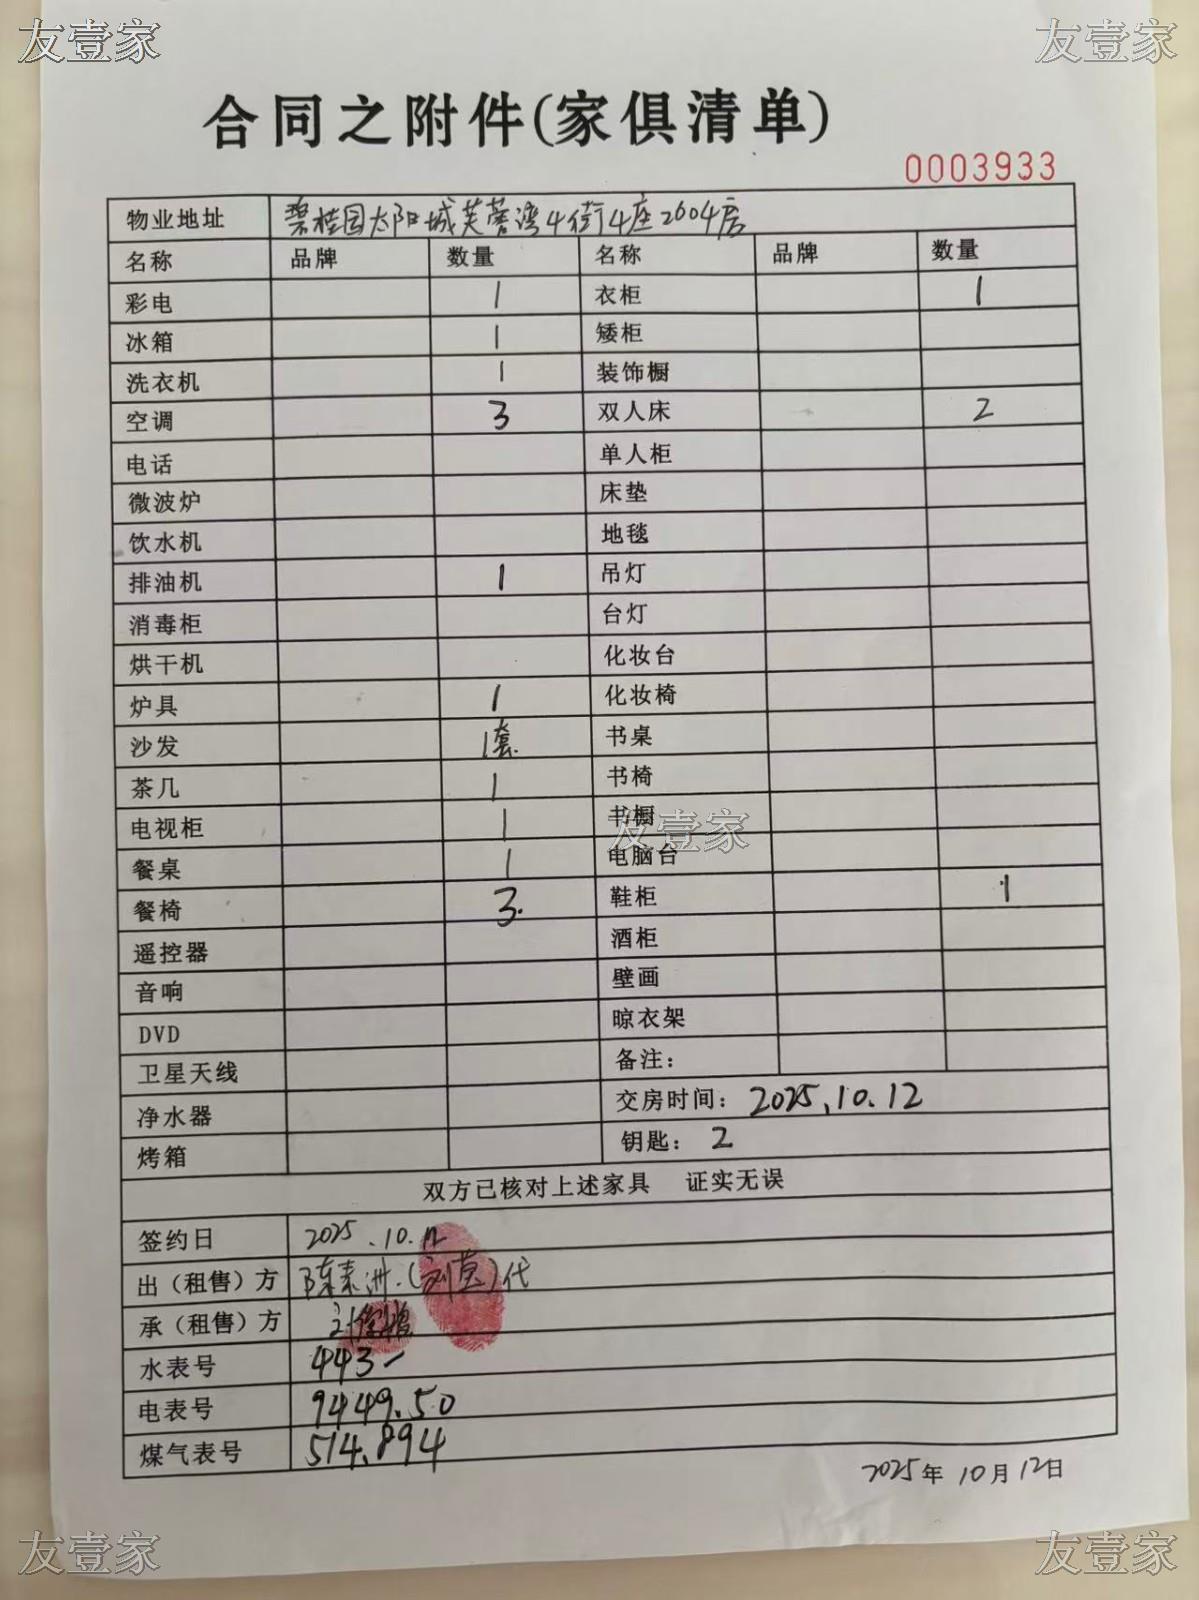 友壹家 友壹家
合同之附件(家俱清单)
0003933
物业地址 碧桂园太阳城芙蓉湾4街4座2604房
名称 品牌 数量 名称 品牌 数量
彩电 1 衣柜 1
冰箱 1 矮柜
洗衣机 1 装饰橱
空调 3 双人床 2
电话 单人柜
微波炉 床垫
饮水机 地毯
排油机 1 吊灯
消毒柜 台灯
烘干机 化妆台
炉具 1 化妆椅
沙发 1套 书桌
茶几 1 书椅
电视柜 1 书橱
友壹家
餐桌 1 电脑台
餐椅 3 鞋柜 1
遥控器 酒柜
音响 壁画
DVD 晾衣架
卫星天线 备注:
净水器 交房时间: 2025.10.12
烤箱 钥匙: 2
双方已核对上述家具 证实无误
签约日 2025.10.12
出(租售)方 陈素洲.( )代
承(租售)方
水表号 443-
电表号 9449.50
煤气表号 514.894
2025年10月12日
友壹家 友壹家